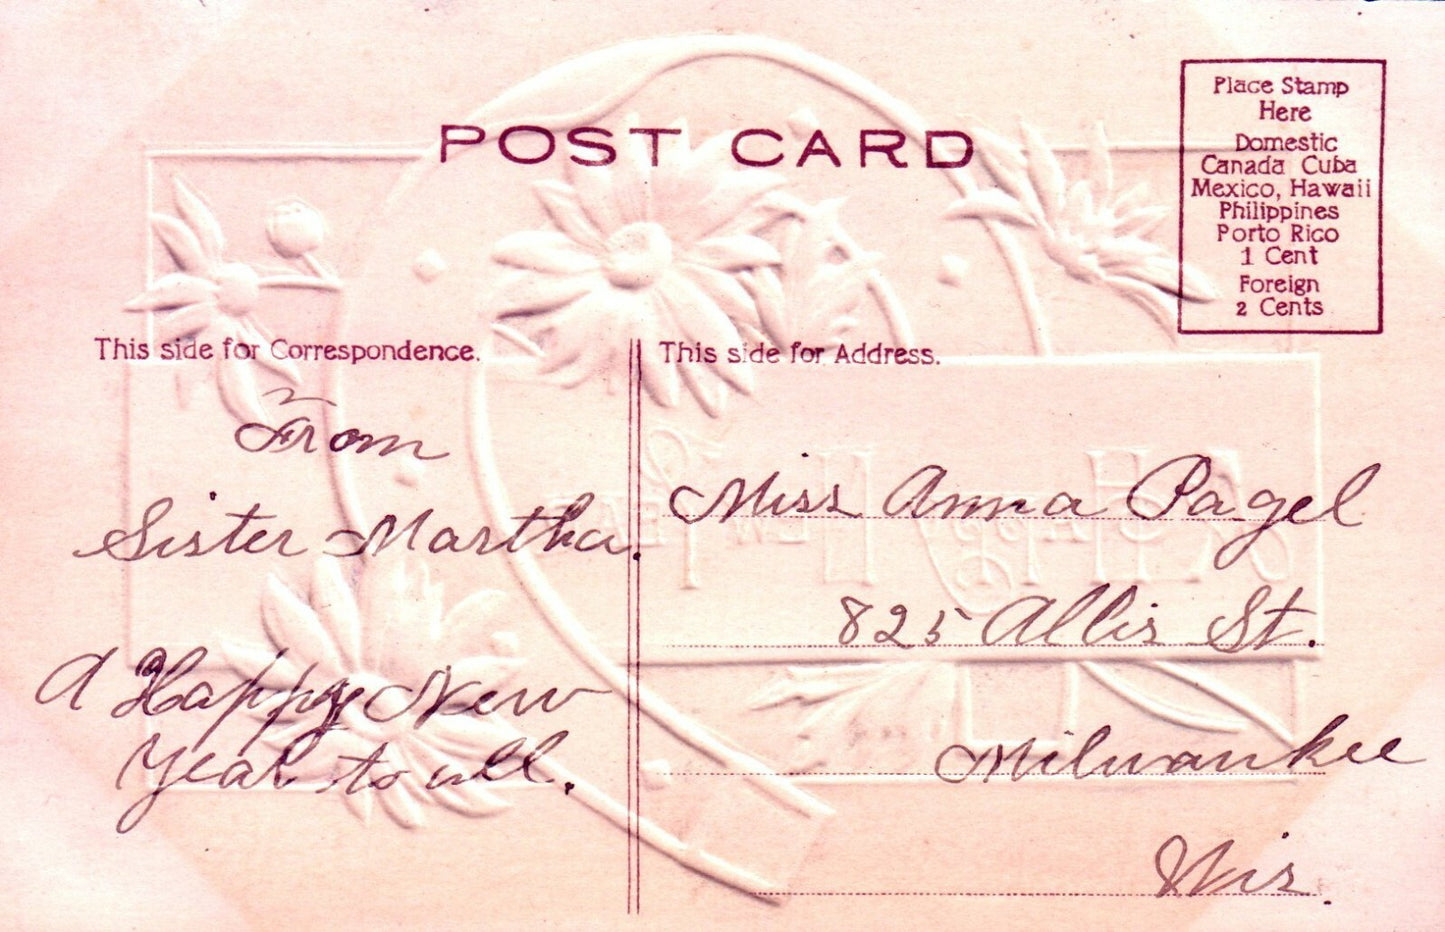 POST CARD
Place Stamp
Here
Domestic
Canada Cuba
Mexico, Hawaii
Philippines
Porto Rico
1 Cent
Foreign
2 Cents
This side for Correspondence.
From
Sister Martha.
A Happy New
Year to all.
This side for Address.
Miss Anna Pagel
825 Allis St.
Milwaukee
Wis.
A HAPPY NEW YEAR